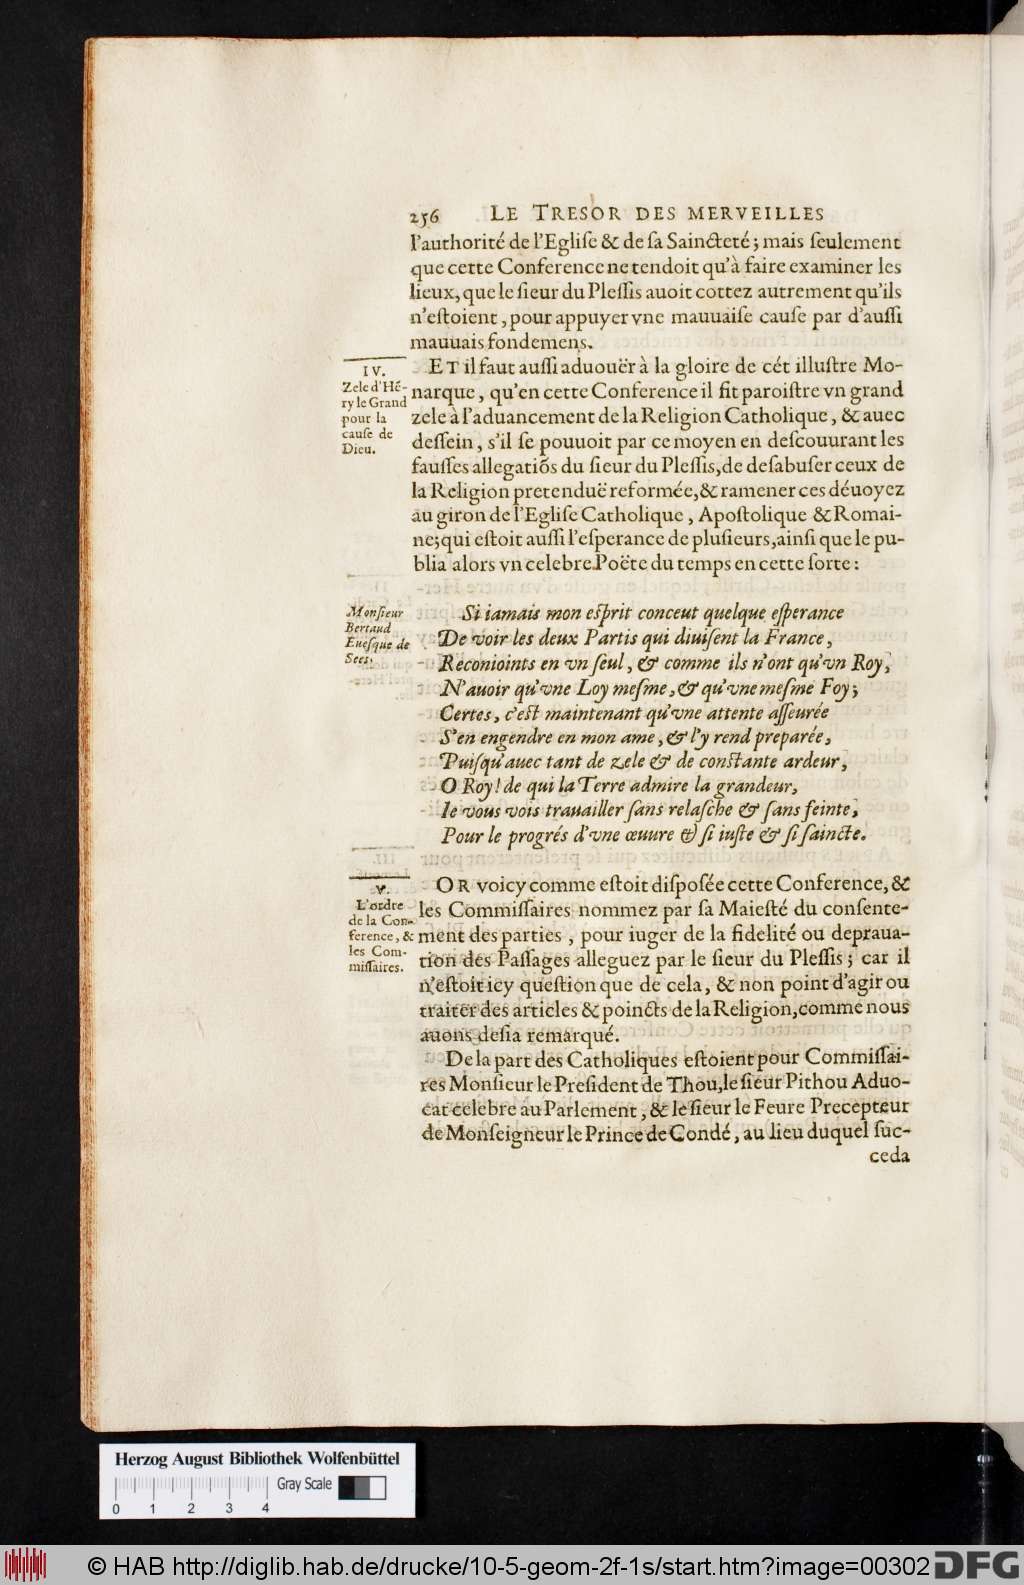 256 LE TRESOR DES MERVEILLES
l'authorité de l'Egliſe & de ſa Saincteté; mais ſeulement
que cette Conference ne tendoit qu'à faire examiner les
lieux, que le ſieur du Pleſſis auoit cottez autrement qu'ils
n'eſtoient, pour appuyer vne mauuaiſe cauſe par d'auſſi
mauuais fondemens.
IV.
Zele d'Hē-
ry le Grand
pour la
cauſe de
Dieu.
ET il faut auſſi aduouër à la gloire de cét illuſtre Mo-
narque, qu'en cette Conference il fit paroiſtre vn grand
zele à l'aduancement de la Religion Catholique, & auec
deſſein, s'il ſe pouuoit par ce moyen en deſcouurant les
fauſſes allegatiōs du ſieur du Pleſſis, de deſabuſer ceux de
la Religion pretenduë reformée, & ramener ces déuoyez
au giron de l'Egliſe Catholique, Apoſtolique & Romai-
ne; qui eſtoit auſſi l'eſperance de pluſieurs, ainſi que le pu-
blia alors vn celebre Poëte du temps en cette ſorte:
Monſieur
Bertaud
Eueſque de
Sees.
Si iamais mon eſprit conceut quelque eſperance
De voir les deux Partis qui diuiſent la France,
Reconioints en vn ſeul, & comme ils n'ont qu'vn Roy,
N'auoir qu'vne Loy meſme, & qu'vne meſme Foy;
Certes, c'eſt maintenant qu'vne attente aſſeurée
S'en engendre en mon ame, & l'y rend preparée,
Puiſqu'auec tant de zele & de conſtante ardeur,
O Roy! de qui la Terre admire la grandeur,
Ie vous vois trauailler ſans relaſche & ſans feinte,
Pour le progrés d'vne œuure & ſi iuſte & ſi ſaincte.
V.
L'ordre
de la Con-
ference, &
les Com-
miſſaires.
OR voicy comme eſtoit diſpoſée cette Conference, &
les Commiſſaires nommez par ſa Maieſté du conſente-
ment des parties, pour iuger de la fidelité ou depraua-
tion des Paſſages alleguez par le ſieur du Pleſſis; car il
n'eſtoit icy queſtion que de cela, & non point d'agir ou
traiter des articles & poincts de la Religion, comme nous
auons deſia remarqué.
De la part des Catholiques eſtoient pour Commiſſai-
res Monſieur le Preſident de Thou, le ſieur Pithou Aduo-
cat celebre au Parlement, & le ſieur le Feure Precepteur
de Monſeigneur le Prince de Condé, au lieu duquel ſuc-
ceda
Herzog August Bibliothek Wolfenbüttel
Gray Scale
0 1 2 3 4
© HAB http://diglib.hab.de/drucke/10-5-geom-2f-1s/start.htm?image=00302 DFG